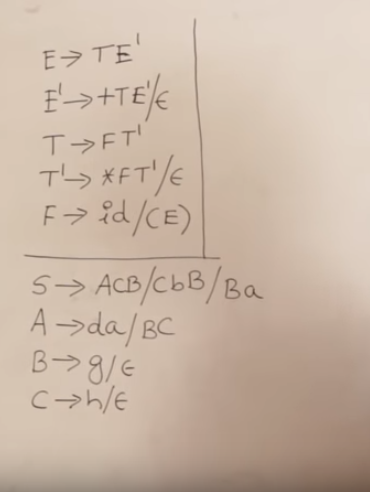 E→ TE'
E'→+TE'/ε
T →FT'
T'→ *FT'/ε
F→ id/(E)
S→ ACB/CbB/Ba
A→da/BC
B→g/ε
C→h/ε